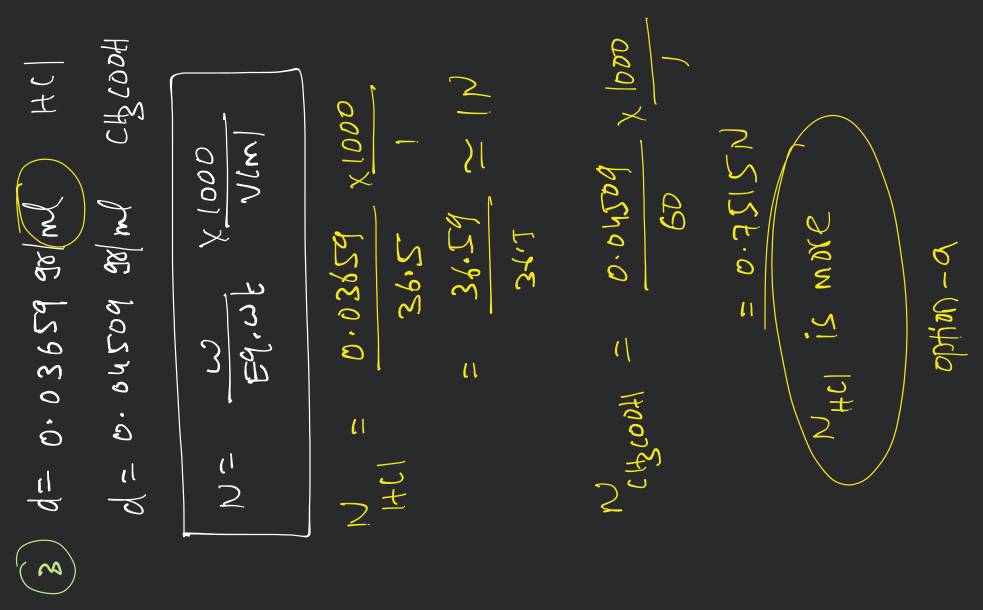 3 d = 0.03659 gr/ml HCl
d = 0.04509 gr/ml CH3COOH
N = w/Eq.wt × 1000/V(ml)
N HCl = 0.03659/36.5 × 1000/1
= 36.59/36.5 ≃ 1N
N CH3COOH = 0.04509/60 × 1000/1
= 0.7515N
N HCl is more
option-a